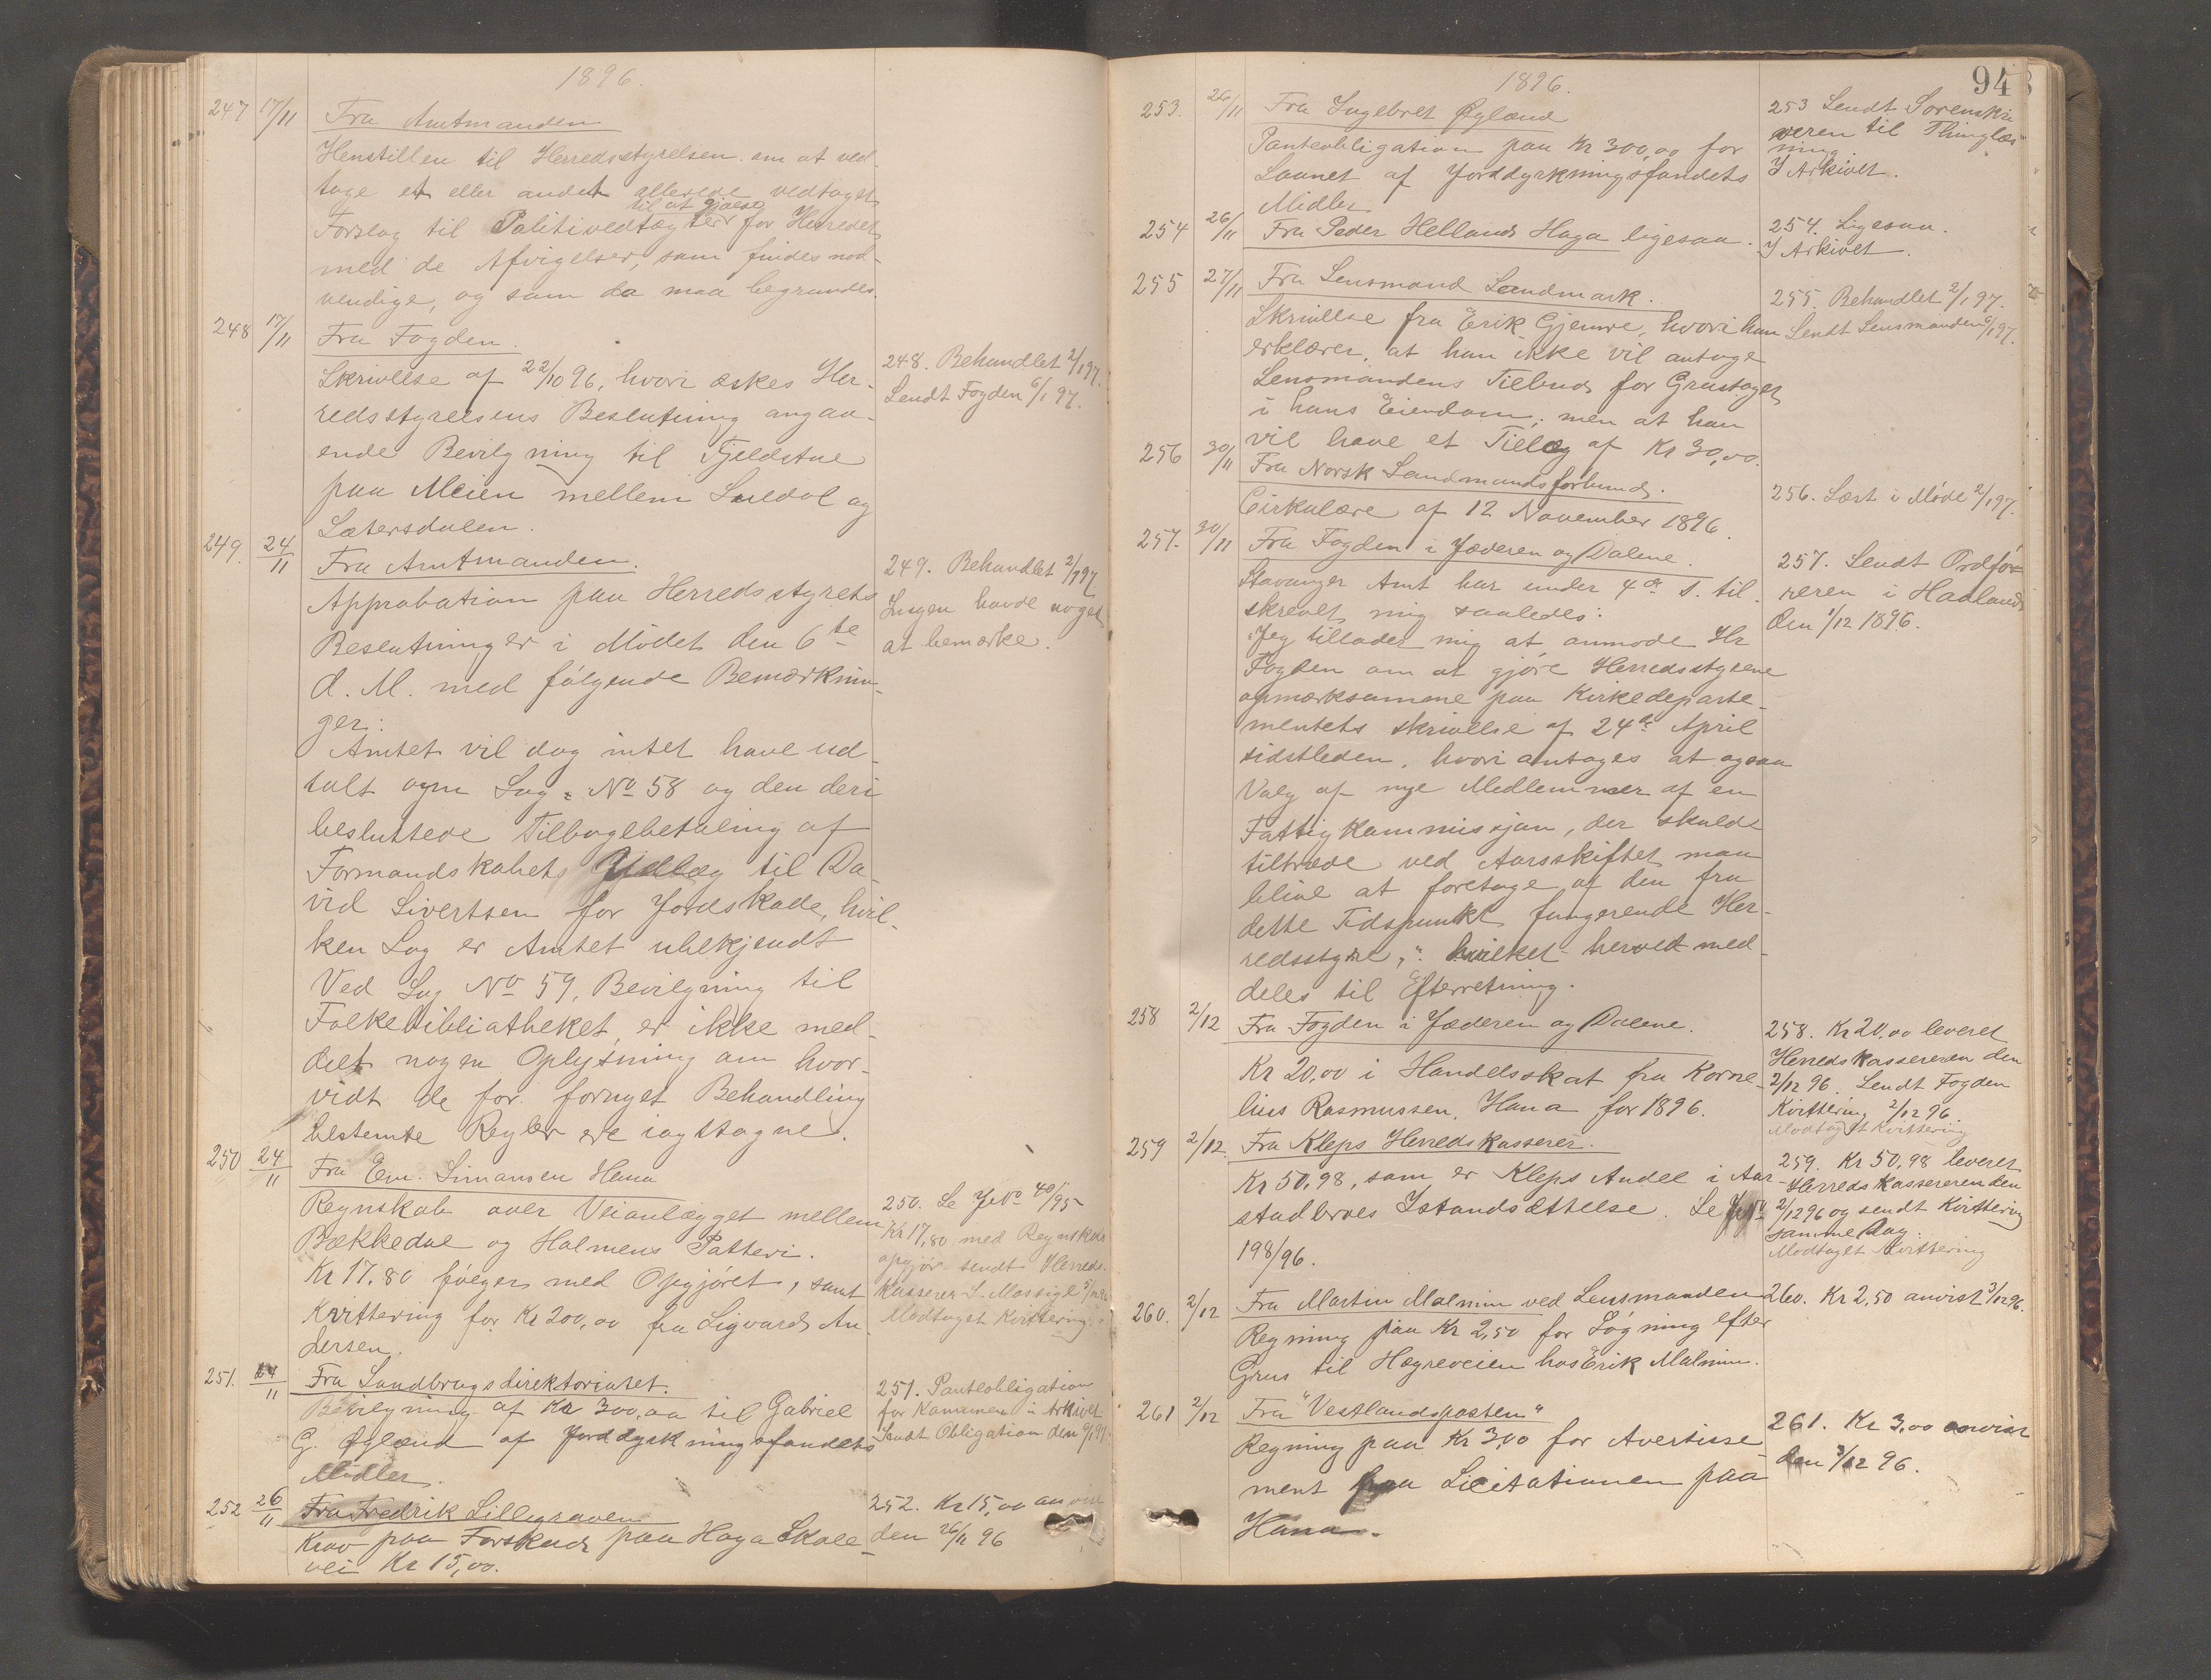 1896.
247 17/11 Fra Amtmanden
Henstillen til Herredsstyrelsen om at ved-
tage et eller andet allerede vedtaget
til at gjælde
Forslag til Politivedtægter for Herredet
med de Afvigelser, som findes nød-
vendige, og som da maa begrundes.
248 17/11 Fra Fogden.
Skrivelse af 22/10 96, hvori æskes Her-
redsstyrelsens Beslutning angaa-
ende Bevilgning til Fjeldstue
paa Meien mellem Suldal og
Sætersdalen.
248. Behandlet 2/1 97.
Sendt Fogden 6/1 97.
249. 24/11 Fra Amtmanden.
Approbation paa Herredsstyrets
Beslutninger i Mødet den 6te
d. M. med følgende Bemærknin-
ger:
Amtet vil dog intet have ud-
talt om Sag No 58 og den deri
besluttede Tilbagebetaling af
Formandskabets Tillæg til Da-
vid Sivertsen for Jordskade, hvil-
ken Sag er Amtet ubekjendt
Ved Sag No 59, Bevilgning til
Folkebibliotheket, er ikke med-
delt nogen Oplysning om hvor-
vidt de for fornyet Behandling
bestemte Regler ere iagttagne.
249. Behandlet 2/1 97
Ingen havde noget
at bemærke.
250 24/11 Fra Em. Simonsen Hana
Regnskab over Veianlægget mellem
Bækkedal og Holmens Potteri.
Kr 17.80 følger med Opgjøret, samt
Kvittering for Kr 200,00 fra Sigvard An-
dersen.
250. Se J No 40/95
Kr 17,80 med Regnskabs
opgjør sendt Herreds-
kasserer S. Mossige
Modtaget Kvittering.
251. 24/11 Fra Landbrugsdirektoriatet.
Bevilgning af Kr 300,00 til Gabriel
G. Øglænd af Jorddyrkningsfondets
Midler.
251. Panteobligation
for Kommunen i Arkivet
Sendt Obligation den
252 26/11 Fra Fredrik Lillegraven
Krav paa Forskud paa Hoga Skole-
vei Kr 15,00.
252. Kr 15,00 anvist
den 26/11 96
94
1896.
253. 26/11 Fra Ingebret Øglænd
Panteobligation paa Kr 300,00 for
Laanet af Jorddyrkningsfondets
Midler
253 Sendt Sorenskri
veren til Thinglæs-
ning.
I Arkivet.
254 26/11 Fra Peder Hellands Hoga ligesaa.
254. Ligesaa.
I Arkivet.
255 27/11 Fra Lensmand Landmark.
Skrivelse fra Erik Gjemre, hvori han
erklærer, at han ikke vil antage
Lensmandens Tilbud for Grustaget
i hans Eiendom; men at han
vil have et Tillæg af Kr 30,00.
255. Behandlet 2/1 97.
Sendt Lensmanden 6/1 97.
256 30/11 Fra Norsk Landmandsforbund.
Cirkulære af 12 November 1896.
256. Læst i Møde 2/1 97.
257. 30/11 Fra Fogden i Jæderen og Dalene.
Stavanger Amt har under 4de d. til-
skrevet mig saaledes:
"Jeg tillader mig at anmode Hr
Fogden om at gjøre Herredsstyrene
opmærksomme paa Kirkedeparte-
mentets skrivelse af 24de April
sidstleden, hvori antages at ogsaa
Valg af nye Medlemmer af en
Fattigkommissjon, der skulde
tiltræde ved Aarsskiftet maa
blive at foretage af den fra
dette Tidspunkt fungerende Her-
redsstyre," hvilket herved med-
deles til Efterretning.
257. Sendt Ordfø-
reren i Haaland
den 1/12 1896.
258 2/12 Fra Fogden i Jæderen og Dalene.
Kr 20,00 i Handelsskat fra Korne-
lius Rasmussen, Hana for 1896.
258. Kr 20,00 leveret
Herredskassereren den
2/12 96. Sendt Fogden
Kvittering 2/12 96.
Modtaget Kvittering
259 2/12. Fra Kleps Herredskasserer.
Kr 50,98, som er Kleps Andel i Aar-
stadbroes Istandsættelse. Se J No
198/96.
259. Kr 50,98 leveret
Herredskassereren den
2/12 96 og sendt Kvittering
samme Dag.
Modtaget Kvittering
260. 2/12 Fra Martin Malmin ved Lensmanden
Regning paa Kr 2,50 for Søgning efter
Grus til Høgreveien hos Erik Malmin.
260. Kr 2,50 anvist 3/12 96.
261 2/12 Fra "Vestlandsposten"
Regning paa Kr 3,00 for Avertisse-
ment fra Licitationen paa
Hana.
261. Kr 3,00 anvist
den 3/12 96.